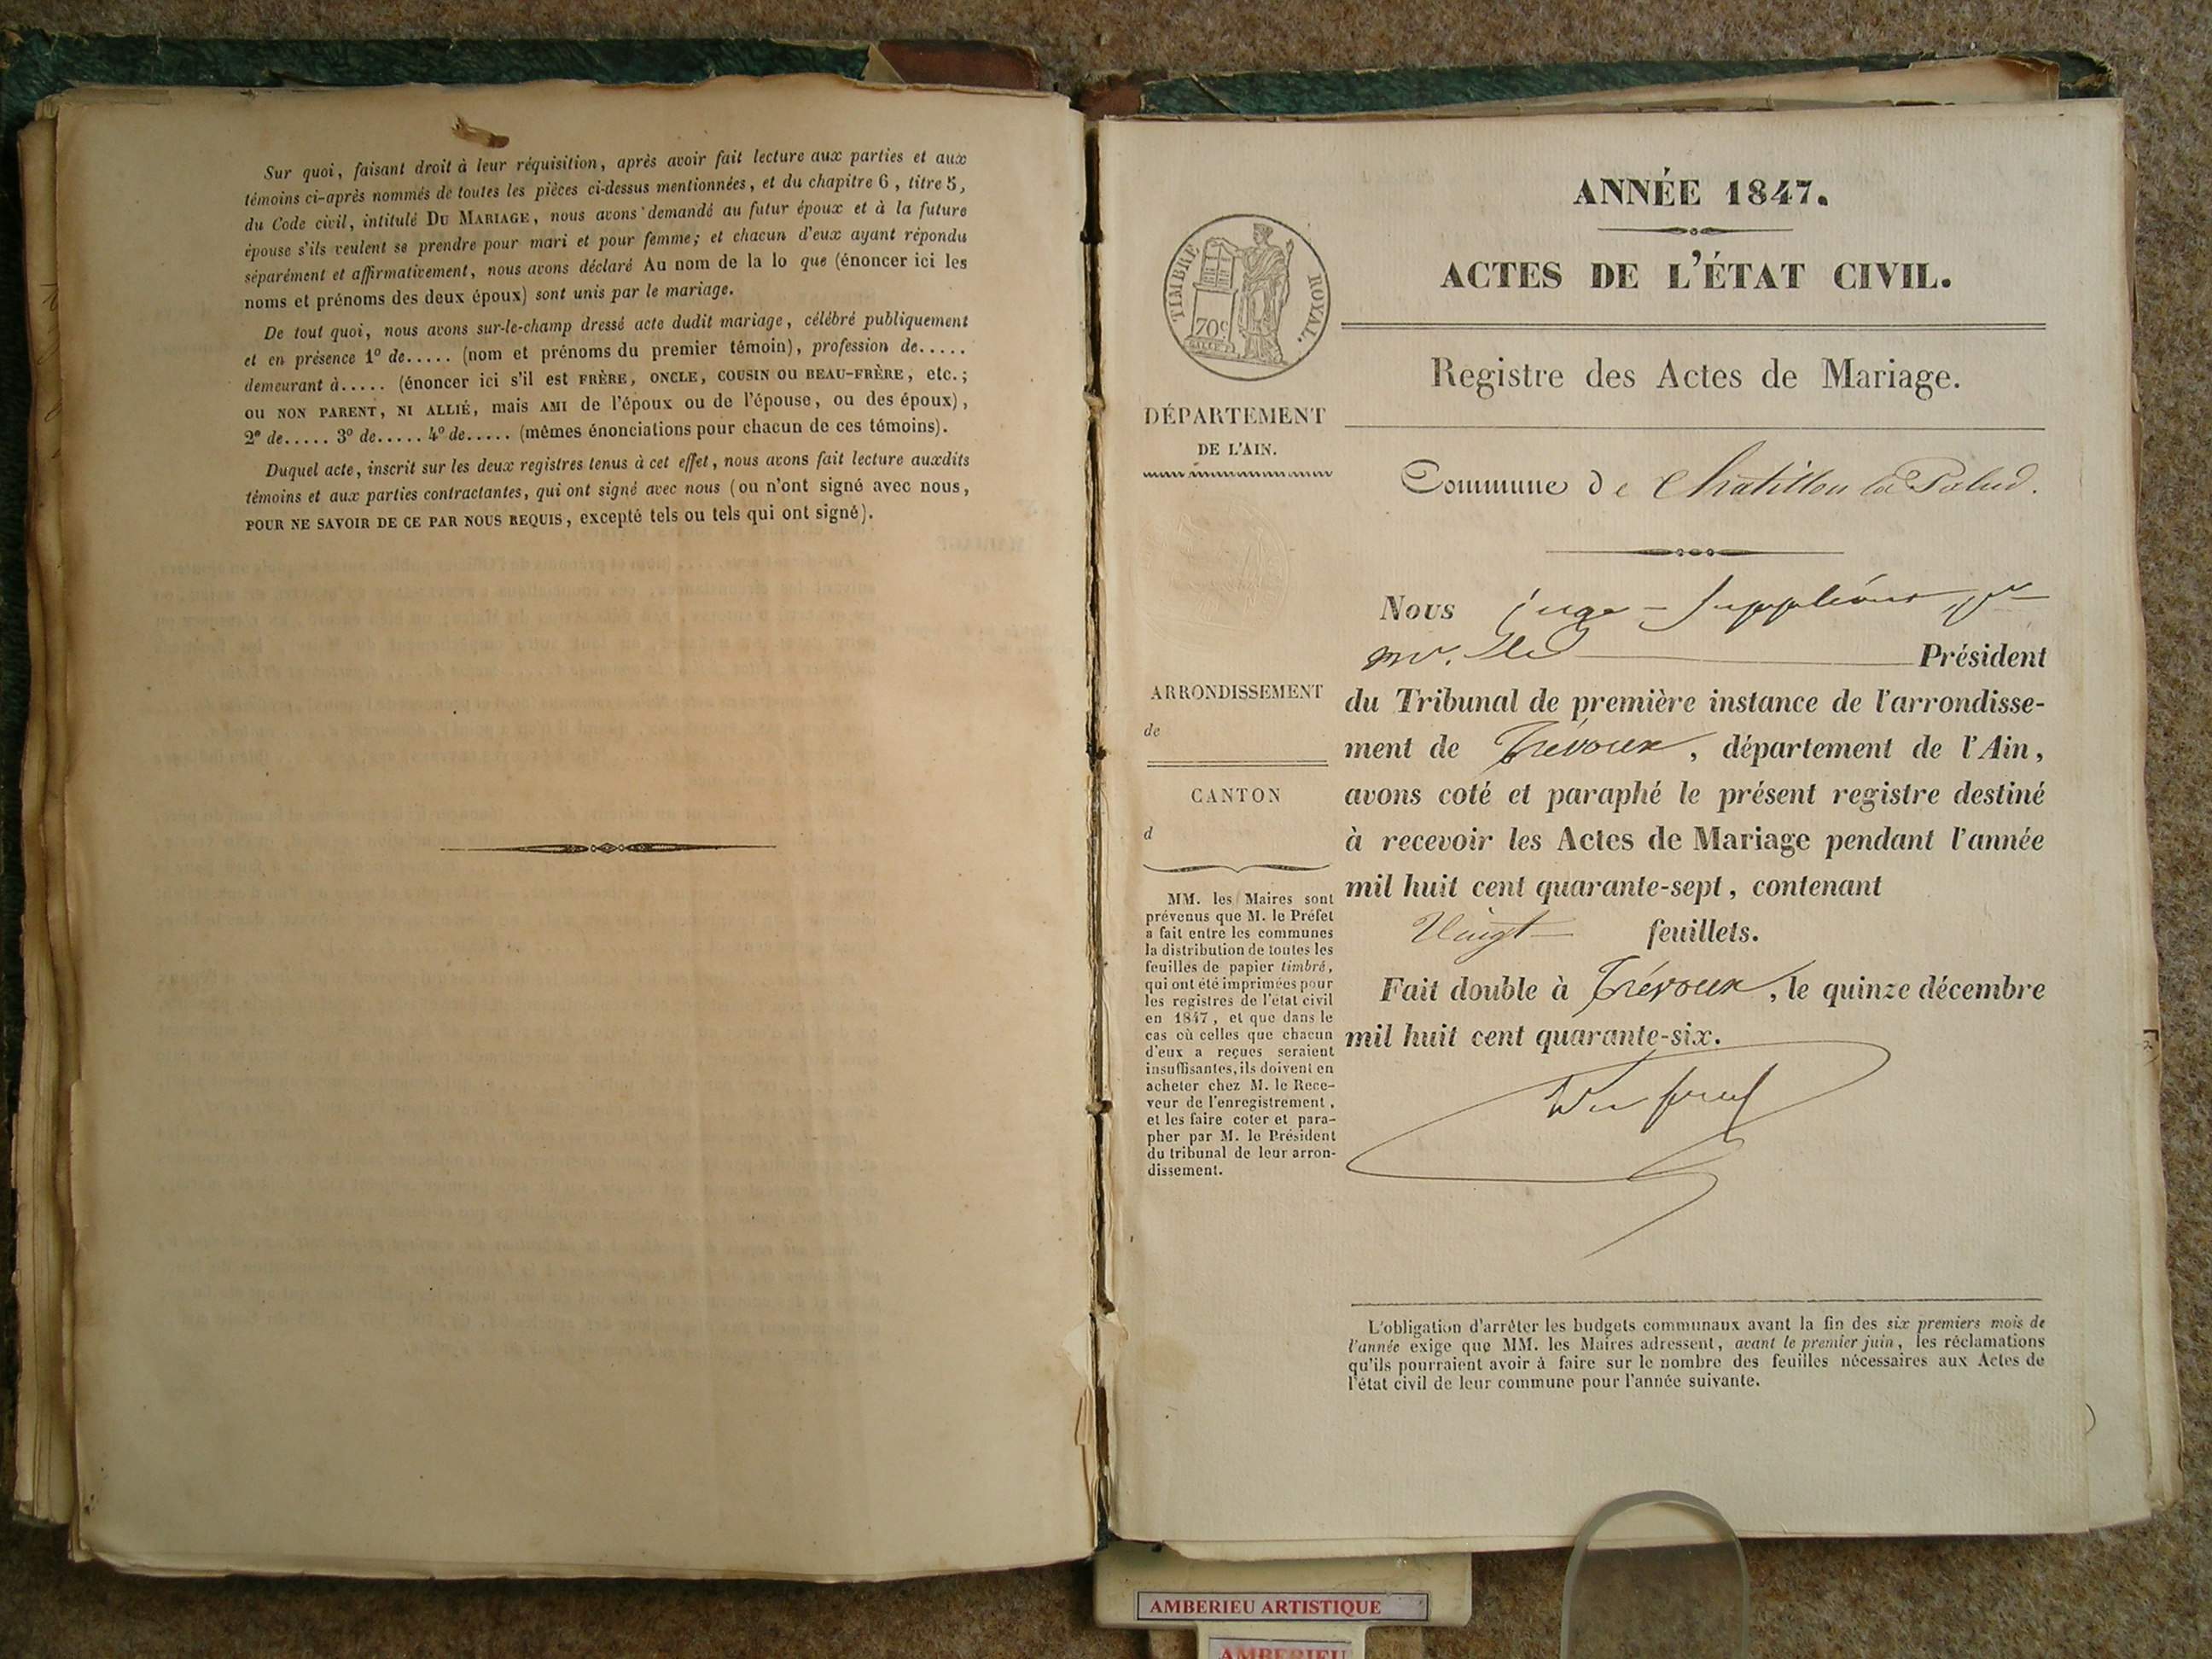 Sur quoi, faisant droit à leur réquisition, après avoir fait lecture aux parties et aux
témoins ci-après nommés de toutes les pièces ci-dessus mentionnées, et du chapitre 6, titre 5,
du Code civil, intitulé DU MARIAGE, nous avons demandé au futur époux et à la future
épouse s'ils veulent se prendre pour mari et pour femme; et chacun d'eux ayant répondu
séparément et affirmativement, nous avons déclaré Au nom de la lo que (énoncer ici les
noms et prénoms des deux époux) sont unis par le mariage.
De tout quoi, nous avons sur-le-champ dressé acte dudit mariage, célébré publiquement
et en présence 1° de..... (nom et prénoms du premier témoin), profession de.....
demeurant à..... (énoncer ici s'il est FRÈRE, ONCLE, COUSIN ou BEAU-FRÈRE, etc.;
ou NON PARENT, NI ALLIÉ, mais AMI de l'époux ou de l'épouse, ou des époux),
2° de..... 3° de..... 4° de..... (mêmes énonciations pour chacun de ces témoins).
Duquel acte, inscrit sur les deux registres tenus à cet effet, nous avons fait lecture auxdits
témoins et aux parties contractantes, qui ont signé avec nous (ou n'ont signé avec nous,
POUR NE SAVOIR DE CE PAR NOUS REQUIS, excepté tels ou tels qui ont signé).
ANNÉE 1847.
ACTES DE L'ÉTAT CIVIL.
TIMBRE ROYAL.
70c
Registre des Actes de Mariage.
DÉPARTEMENT
DE L'AIN.
Commune de Chatillon la Palud.
Nous juge-suppléant pr
mr. le Président
ARRONDISSEMENT
de
CANTON
d
du Tribunal de première instance de l'arrondisse-
ment de Trévoux, département de l'Ain,
avons coté et paraphé le présent registre destiné
à recevoir les Actes de Mariage pendant l'année
mil huit cent quarante-sept, contenant
Vingt feuillets.
Fait double à Trévoux, le quinze décembre
mil huit cent quarante-six.
MM. les Maires sont
prévenus que M. le Préfet
a fait entre les communes
la distribution de toutes les
feuilles de papier timbré,
qui ont été imprimées pour
les registres de l'état civil
en 1847, et que dans le
cas où celles que chacun
d'eux a reçues seraient
insuffisantes, ils doivent en
acheter chez M. le Rece-
veur de l'enregistrement,
et les faire coter et para-
pher par M. le Président
du tribunal de leur arron-
dissement.
L'obligation d'arrêter les budgets communaux avant la fin des six premiers mois de
l'année exige que MM. les Maires adressent, avant le premier juin, les réclamations
qu'ils pourraient avoir à faire sur le nombre des feuilles nécessaires aux Actes de
l'état civil de leur commune pour l'année suivante.
AMBERIEU ARTISTIQUE
AMBERIEU